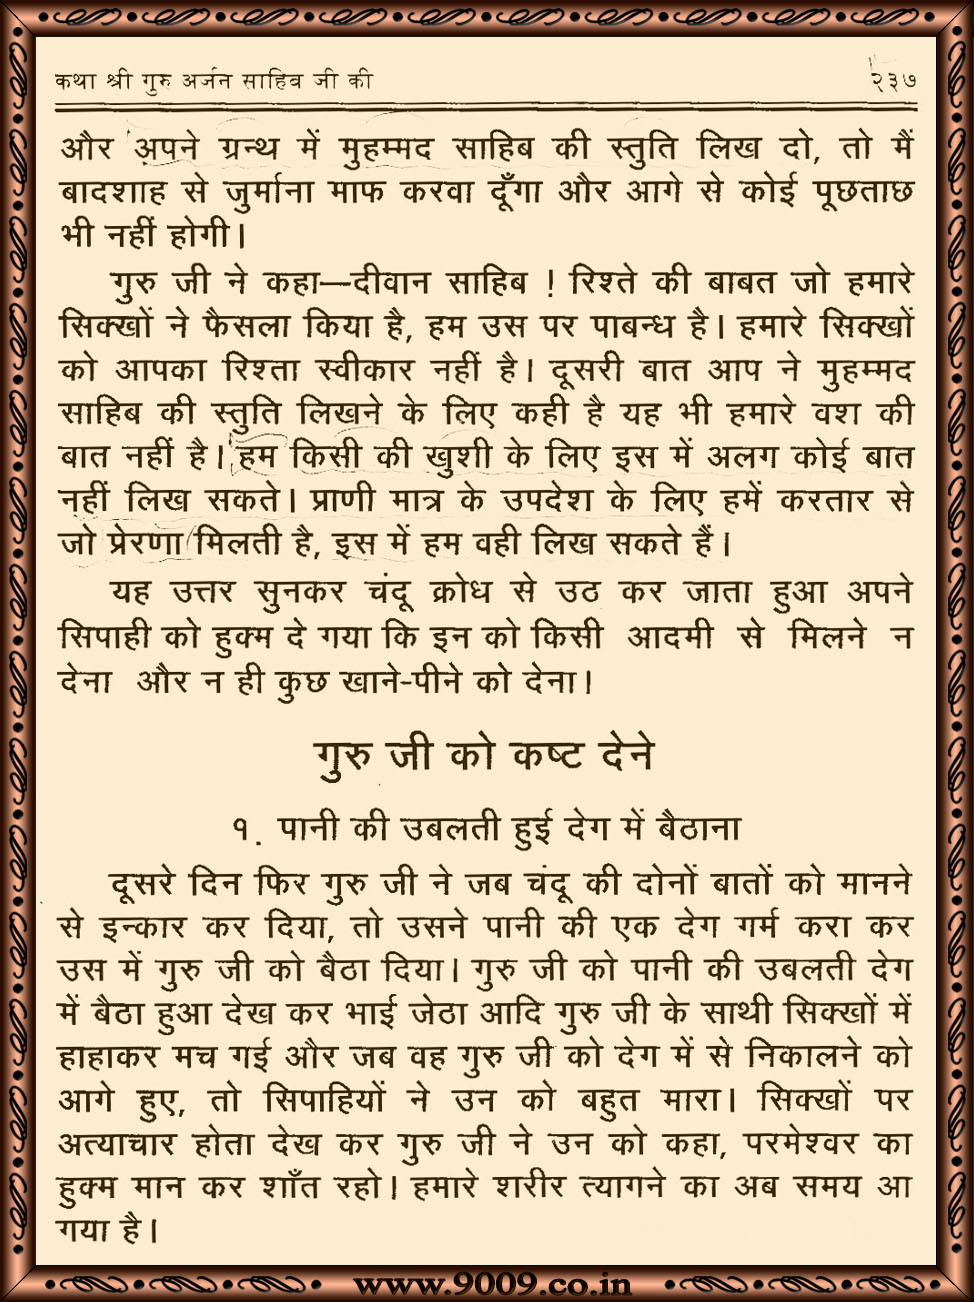 कथा श्री गुरु अर्जन साहिब जी की २३७
और अपने ग्रन्थ में मुहम्मद साहिब की स्तुति लिख दो, तो मैं
बादशाह से जुर्माना माफ करवा दूँगा और आगे से कोई पूछताछ
भी नहीं होगी।
गुरु जी ने कहा—दीवान साहिब ! रिश्ते की बाबत जो हमारे
सिक्खों ने फैसला किया है, हम उस पर पाबन्ध है। हमारे सिक्खों
को आपका रिश्ता स्वीकार नहीं है। दूसरी बात आप ने मुहम्मद
साहिब की स्तुति लिखने के लिए कही है यह भी हमारे वश की
बात नहीं है। हम किसी की खुशी के लिए इस में अलग कोई बात
नहीं लिख सकते। प्राणी मात्र के उपदेश के लिए हमें करतार से
जो प्रेरणा मिलती है, इस में हम वही लिख सकते हैं।
यह उत्तर सुनकर चंदू क्रोध से उठ कर जाता हुआ अपने
सिपाही को हुक्म दे गया कि इन को किसी आदमी से मिलने न
देना और न ही कुछ खाने-पीने को देना।
गुरु जी को कष्ट देने
१. पानी की उबलती हुई देग में बैठाना
दूसरे दिन फिर गुरु जी ने जब चंदू की दोनों बातों को मानने
से इन्कार कर दिया, तो उसने पानी की एक देग गर्म करा कर
उस में गुरु जी को बैठा दिया। गुरु जी को पानी की उबलती देग
में बैठा हुआ देख कर भाई जेठा आदि गुरु जी के साथी सिक्खों में
हाहाकर मच गई और जब वह गुरु जी को देग में से निकालने को
आगे हुए, तो सिपाहियों ने उन को बहुत मारा। सिक्खों पर
अत्याचार होता देख कर गुरु जी ने उन को कहा, परमेश्वर का
हुक्म मान कर शाँत रहो। हमारे शरीर त्यागने का अब समय आ
गया है।
www.9009.co.in